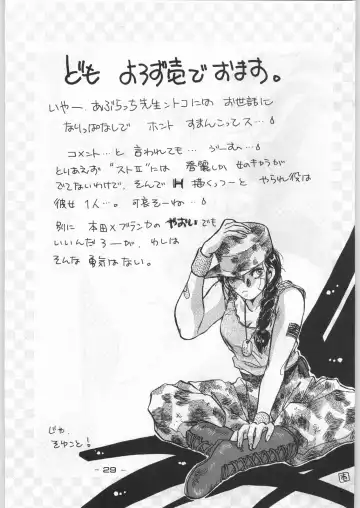 ども よろず壱でおます。
いやー あぶらっち先生ントコには お世話に
なりっぱなしで ホント すまんこってス…
コメント…と 言われても… うーむ…
とりあえず "ストⅡ"には 春麗しか 女のキャラが
でてないわけで、そんで H 描くっつーと やられ役は
彼女1人…。可哀そーね…
別に 本田×ブランカの やおいでも
いいんだろーが、わしは
そんな 勇気はない。
じゃ、
そゆこと!
- 29 -